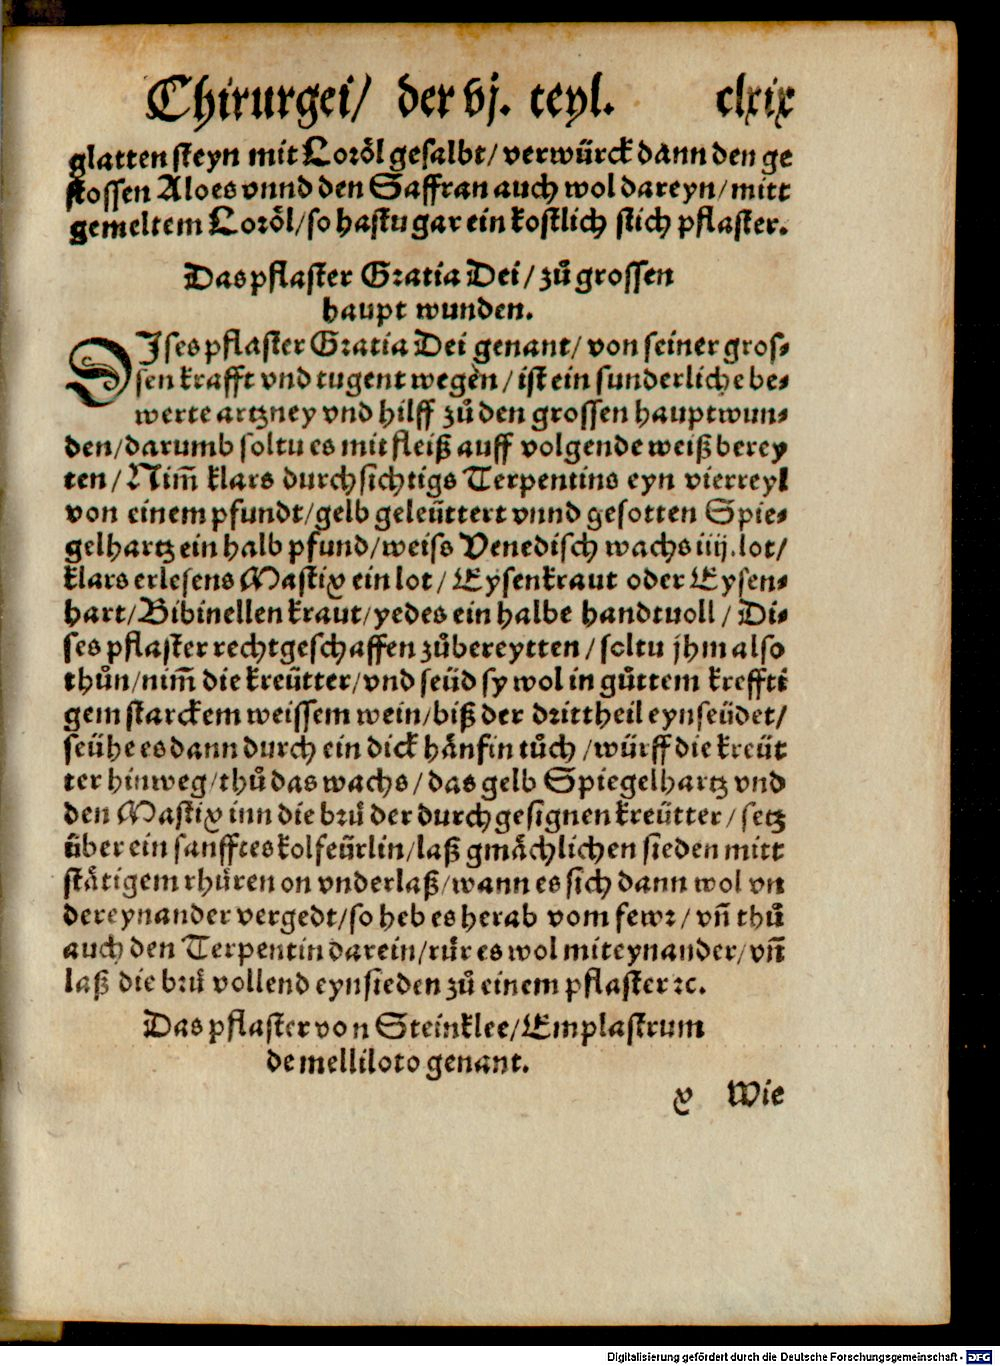 Chirurgei/ der vj. teyl. clxix
glatten steyn mit Loröl gesalbt/ verwürck dann den ge
stossen Aloes vnnd den Saffran auch wol dareyn/ mitt
gemeltem Loröl/ so hastu gar ein kostlich stich pflaster.
Das pflaster Gratia Dei/ zů grossen
haupt wunden.
DJses pflaster Gratia Dei genant/ von seiner gros⸗
sen krafft vnd tugent wegen/ ist ein sunderliche be⸗
werte artzney vnd hilff zů den grossen hauptwun⸗
den/ darumb soltu es mit fleiß auff volgende weiß berey
ten/ Nim̄ klars durchsichtigs Terpentins eyn vierteyl
von einem pfundt/ gelb geleüttert vnnd gesotten Spie⸗
gelhartz ein halb pfund/ weiss Venedisch wachs iiij. lot/
klars erlesens Mastix ein lot/ Eysenkraut oder Eysen⸗
hart/ Bibinellen kraut/ yedes ein halbe handtuoll/ Di⸗
ses pflaster rechtgeschaffen zůbereytten/ soltu jhm also
thůn/ nim̄ die kreütter/ vnd seüd sy wol in gůttem kreffti
gem starckem weissem wein/ biß der drittheil eynseüdet/
seühe es dann durch ein dick hänfin tůch/ würff die kreüt
ter hinweg/ thů das wachs/ das gelb Spiegelhartz vnd
den Mastix inn die brů der durchgesignen kreütter/ setz
über ein sanfftes kolfeürlin/ laß gmächlichen sieden mitt
stätigem rhüren on vnderlaß/ wann es sich dann wol vn
dereynander vergedt/ so heb es herab vom fewr/ vn̄ thů
auch den Terpentin darein/ rür es wol miteynander/ vn̄
laß die brů vollend eynsieden zů einem pflaster ꝛc.
Das pflaster von Steinklee/ Emplastrum
de melliloto genant.
x Wie
Digitalisierung gefördert durch die Deutsche Forschungsgemeinschaft - DFG